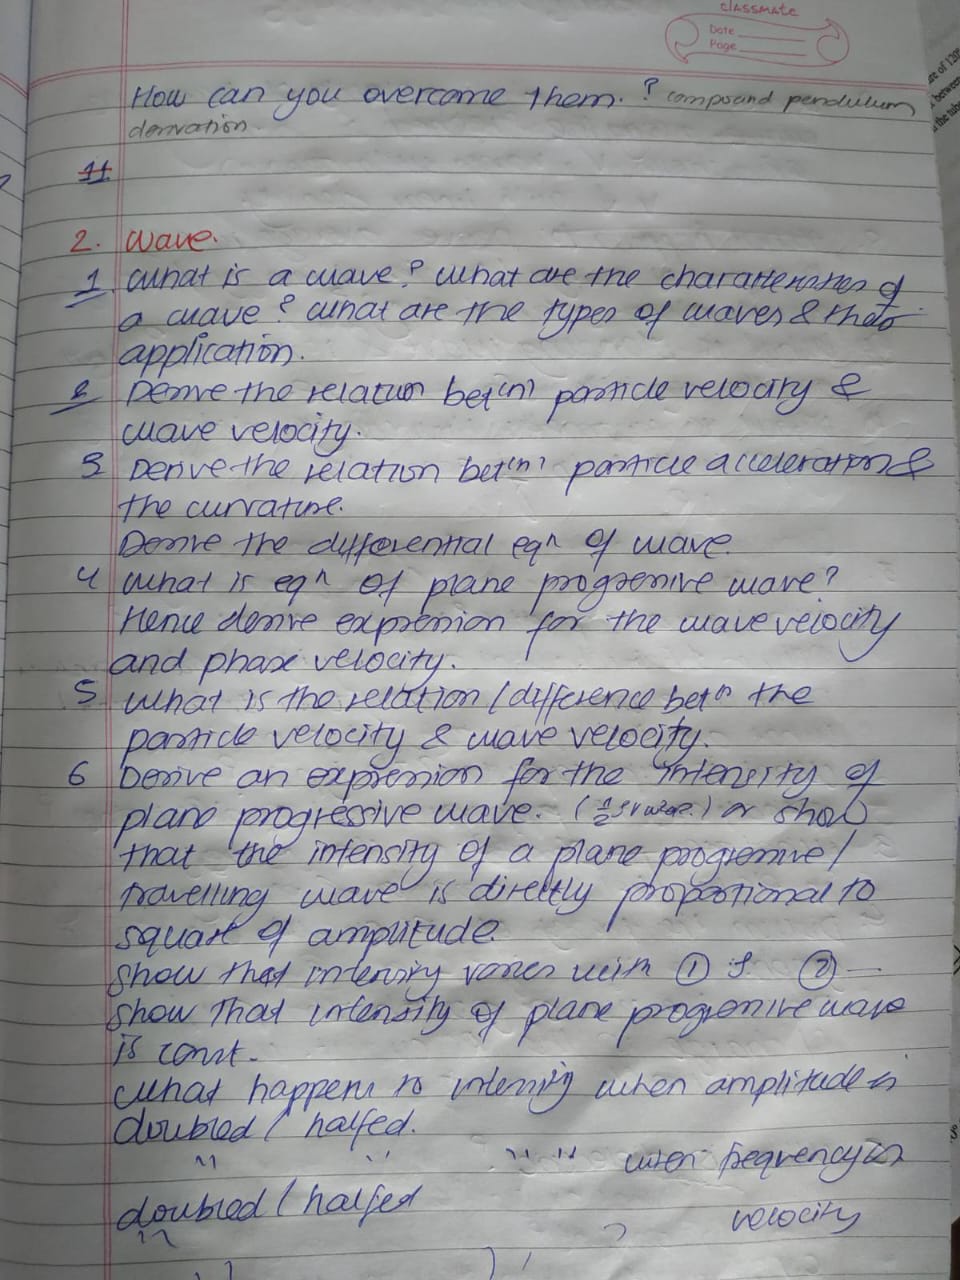 classmate
Date
Page
How can you overcome them. ? compound pendulum
derivation.
11
2. Wave.
1. What is a wave? What are the characteristics of
a wave? What are the types of waves &
application.
2 Derive the relation bet(n) particle velocity &
wave velocity.
3 Derive the relation bet(n) particle acceleration &
the curvature.
Derive the differential eqn of wave.
4 What is eqn of plane progressive wave?
Hence derive expression for the wave velocity
and phase velocity.
5 What is the relation / difference betn the
particle velocity & wave velocity.
6 Derive an expression for the intensity of
plane progressive wave. or show
that the intensity of a plane progressive /
travelling wave is directly proportional to
square of amplitude.
Show that intensity varies with ① ②
Show that intensity of plane progressive wave
is const.
What happens to intensity when amplitude is
doubled / halfed.
" " " " when frequency is
doubled / halfed
velocity
ze of 120
between
the tube